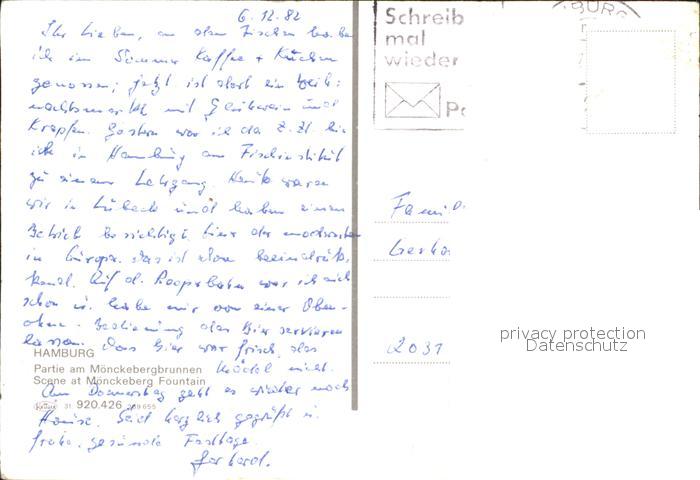 6.12.82
Ihr Lieben, an den Tischen habe
ich im Sommer Kaffee + Kuchen
genossen; jetzt ist dort ein Weih=
nachtsmarkt mit Glühwein und
Krapfen. Gestern war ich da. Z.Zt. bin
ich in Hamburg am Fischinstitut
zu einem Lehrgang. Heute waren
wir in Lübeck und haben einen
Betrieb besichtigt, einer der modernsten
in Europa. das ist schon beeindruk-
kend. Auf d. Reeperbahn war ich auch
schon u. habe mir von einer Oben-
ohne-Bedienung das Bier servieren
lassen. Das Bier war frisch, das
Mädel nicht.
Am Donnerstag geht es wieder nach
Hause. Seid herzlich gegrüßt u.
frohe, gesunde Festtage.
Gerhard.
HAMBURG
Partie am Mönckebergbrunnen
Scene at Mönckeberg Fountain
Krüger 31. 920.426 209 655
Schreib
mal
wieder
Po
BURG
Fami
Gerha
2031
privacy protection
Datenschutz